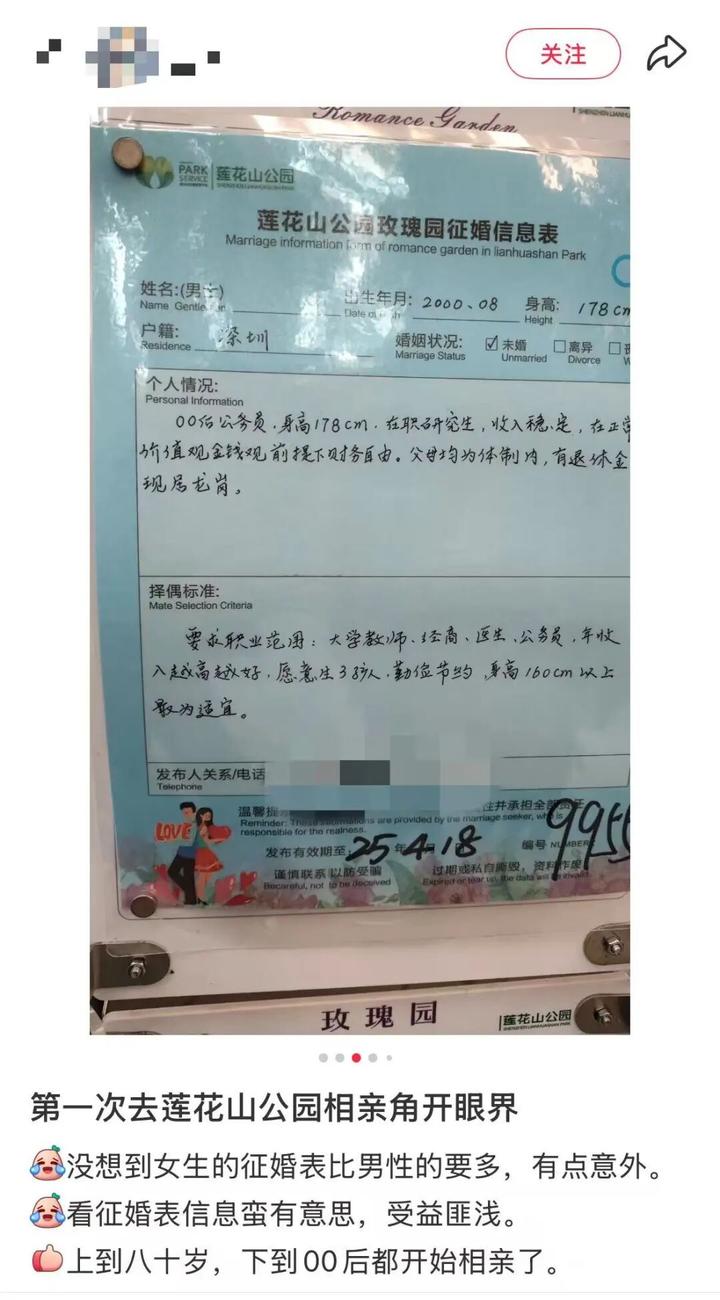 关注
Romance Garden
PARK
SERVICE
莲花山公园
莲花山公园玫瑰园征婚信息表
Marriage information form of romance garden in lianhuashan Park
姓名:(男士)
Name Gentleman
出生年月: 2000.08
身高: 178cm
Height
户籍: 深圳
Residence
婚姻状况: ☑未婚 □离异 □
Marriage Status Unmarried Divorce
个人情况:
Personal Information
00后公务员,身高178cm,在职研究生,收入稳定,在正常
价值观金钱观前提下财务自由。父母均为体制内,有退休金
现居龙岗。
择偶标准:
Mate Selection Criteria
要求职业范围:大学教师、经商、医生、公务员,年收
入越高越好,愿意生3孩人,勤俭节约,身高160cm以上
最为适宜。
发布人关系/电话
Telephone
温馨提 性并承担全部责任
Reminder: These informations are provided by the marriage seeker, who is
responsible for the realness.
LOVE
发布有效期至: 25年4.18
编号 NUMBER 9955
谨慎联系 以防受骗
Becareful, not to be deceived
过期或私自撕毁,资料作废
Expired or tear up, the data will be invalid.
玫瑰园
莲花山公园
第一次去莲花山公园相亲角开眼界
没想到女生的征婚表比男性的要多,有点意外。
看征婚表信息蛮有意思,受益匪浅。
上到八十岁,下到00后都开始相亲了。